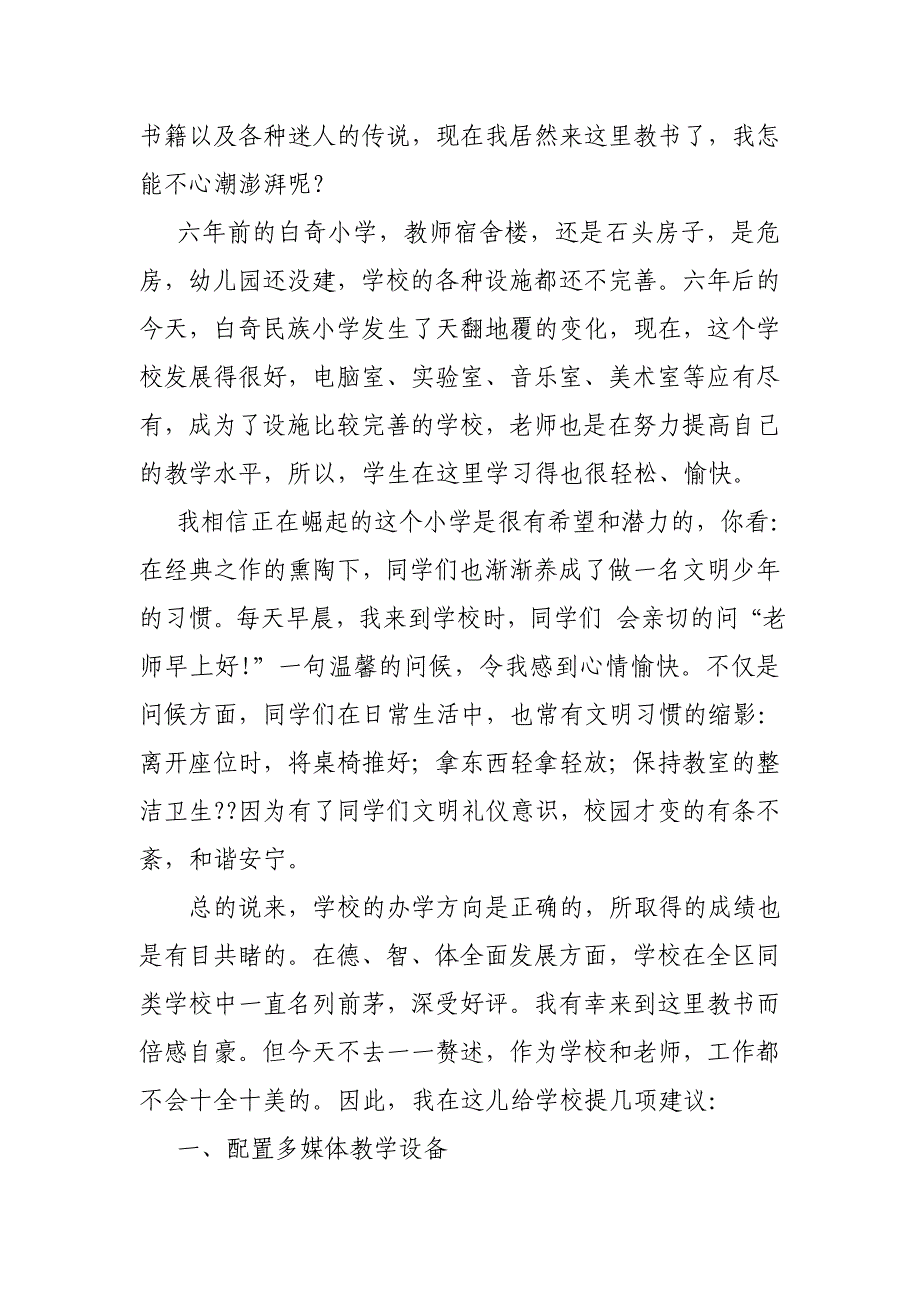 书籍以及各种迷人的传说，现在我居然来这里教书了，我怎
能不心潮澎湃呢？
六年前的白奇小学，教师宿舍楼，还是石头房子，是危
房，幼儿园还没建，学校的各种设施都还不完善。六年后的
今天，白奇民族小学发生了天翻地覆的变化，现在，这个学
校发展得很好，电脑室、实验室、音乐室、美术室等应有尽
有，成为了设施比较完善的学校，老师也是在努力提高自己
的教学水平，所以，学生在这里学习得也很轻松、愉快。
我相信正在崛起的这个小学是很有希望和潜力的，你看：
在经典之作的熏陶下，同学们也渐渐养成了做一名文明少年
的习惯。每天早晨，我来到学校时，同学们 会亲切的问“老
师早上好！”一句温馨的问候，令我感到心情愉快。不仅是
问候方面，同学们在日常生活中，也常有文明习惯的缩影：
离开座位时，将桌椅推好；拿东西轻拿轻放；保持教室的整
洁卫生??因为有了同学们文明礼仪意识，校园才变的有条不
紊，和谐安宁。
总的说来，学校的办学方向是正确的，所取得的成绩也
是有目共睹的。在德、智、体全面发展方面，学校在全区同
类学校中一直名列前茅，深受好评。我有幸来到这里教书而
倍感自豪。但今天不去一一赘述，作为学校和老师，工作都
不会十全十美的。因此，我在这儿给学校提几项建议：
一、配置多媒体教学设备